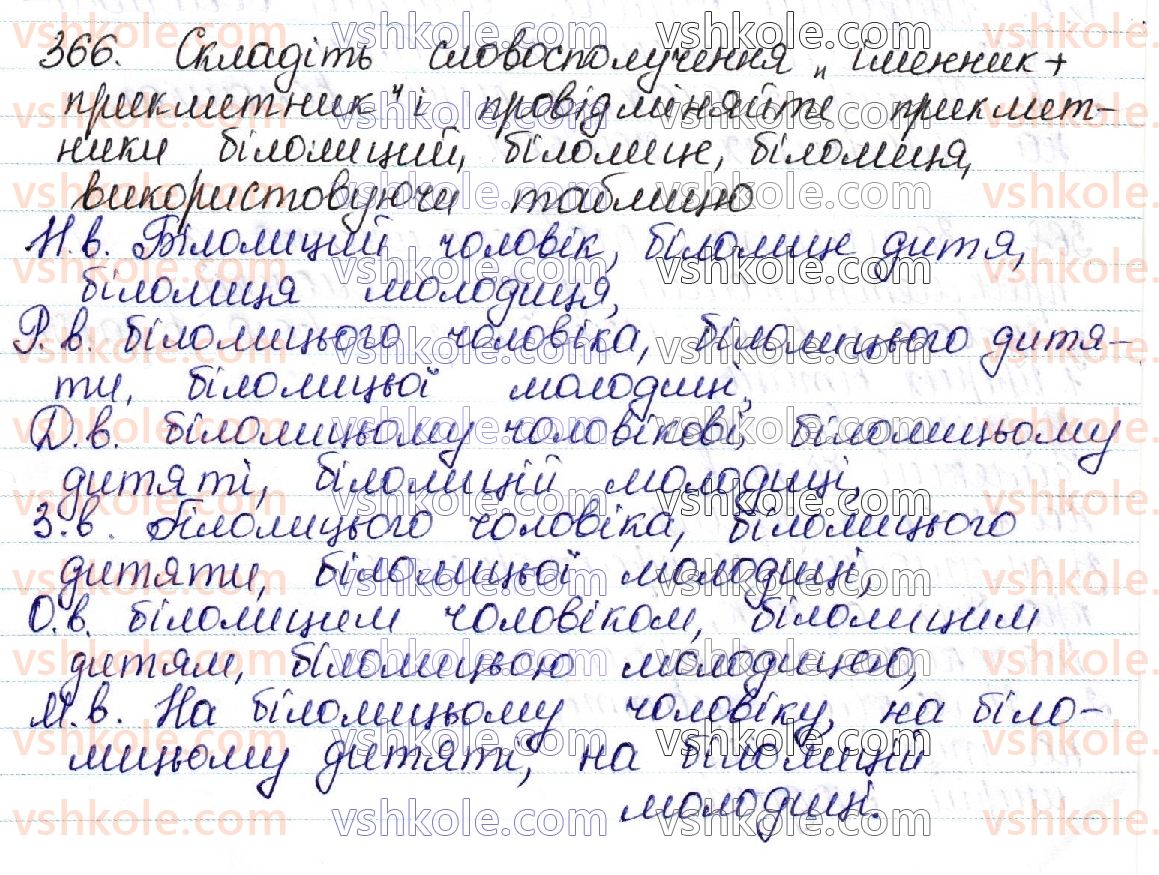 366. Складіть словосполучення „іменник+
прикметник“ і провідміняйте прикмет-
ники білолиций, білолице, білолиця,
використовуючи таблицю
Н.в. Білолиций чоловік, білолице дитя,
білолиця молодиця,
Р.в. білолицього чоловіка, білолицього дитя-
ти, білолицьої молодиці,
Д.в. білолицьому чоловікові, білолицьому
дитяті, білолицій молодиці,
З.в. Білолицього чоловіка, білолицього
дитяти, білолицьої молодиці,
О.в. білолицим чоловіком, білолицим
дитям, білолицьою молодицею,
М.в. На білолицьому чоловіку, на біло-
лицьому дитяті, на білолиції
молодиці.
vshkole.com